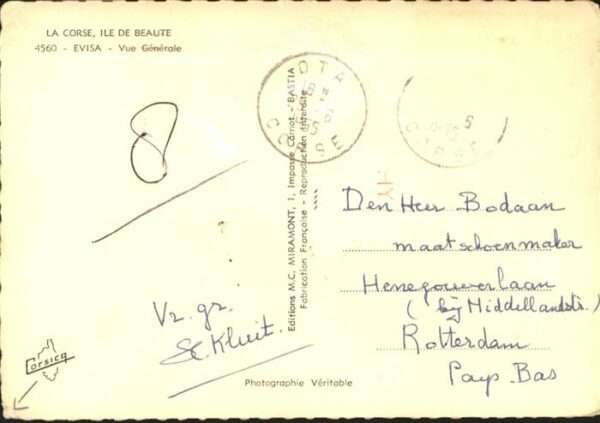 LA CORSE, ILE DE BEAUTE
4560 - EVISA - Vue Générale
8
OTA
CORSE
Editions M.C. MIRAMONT, 1, Impasse Carnot - BASTIA
Fabrication Française - Reproduction interdite
Den Heer Bodaan
maatschoenmaker
Henegouwerlaan
(bij Middellandstr.)
Rotterdam
Pays-Bas
Vr. gr.
Kluit.
Corsica
Photographie Véritable